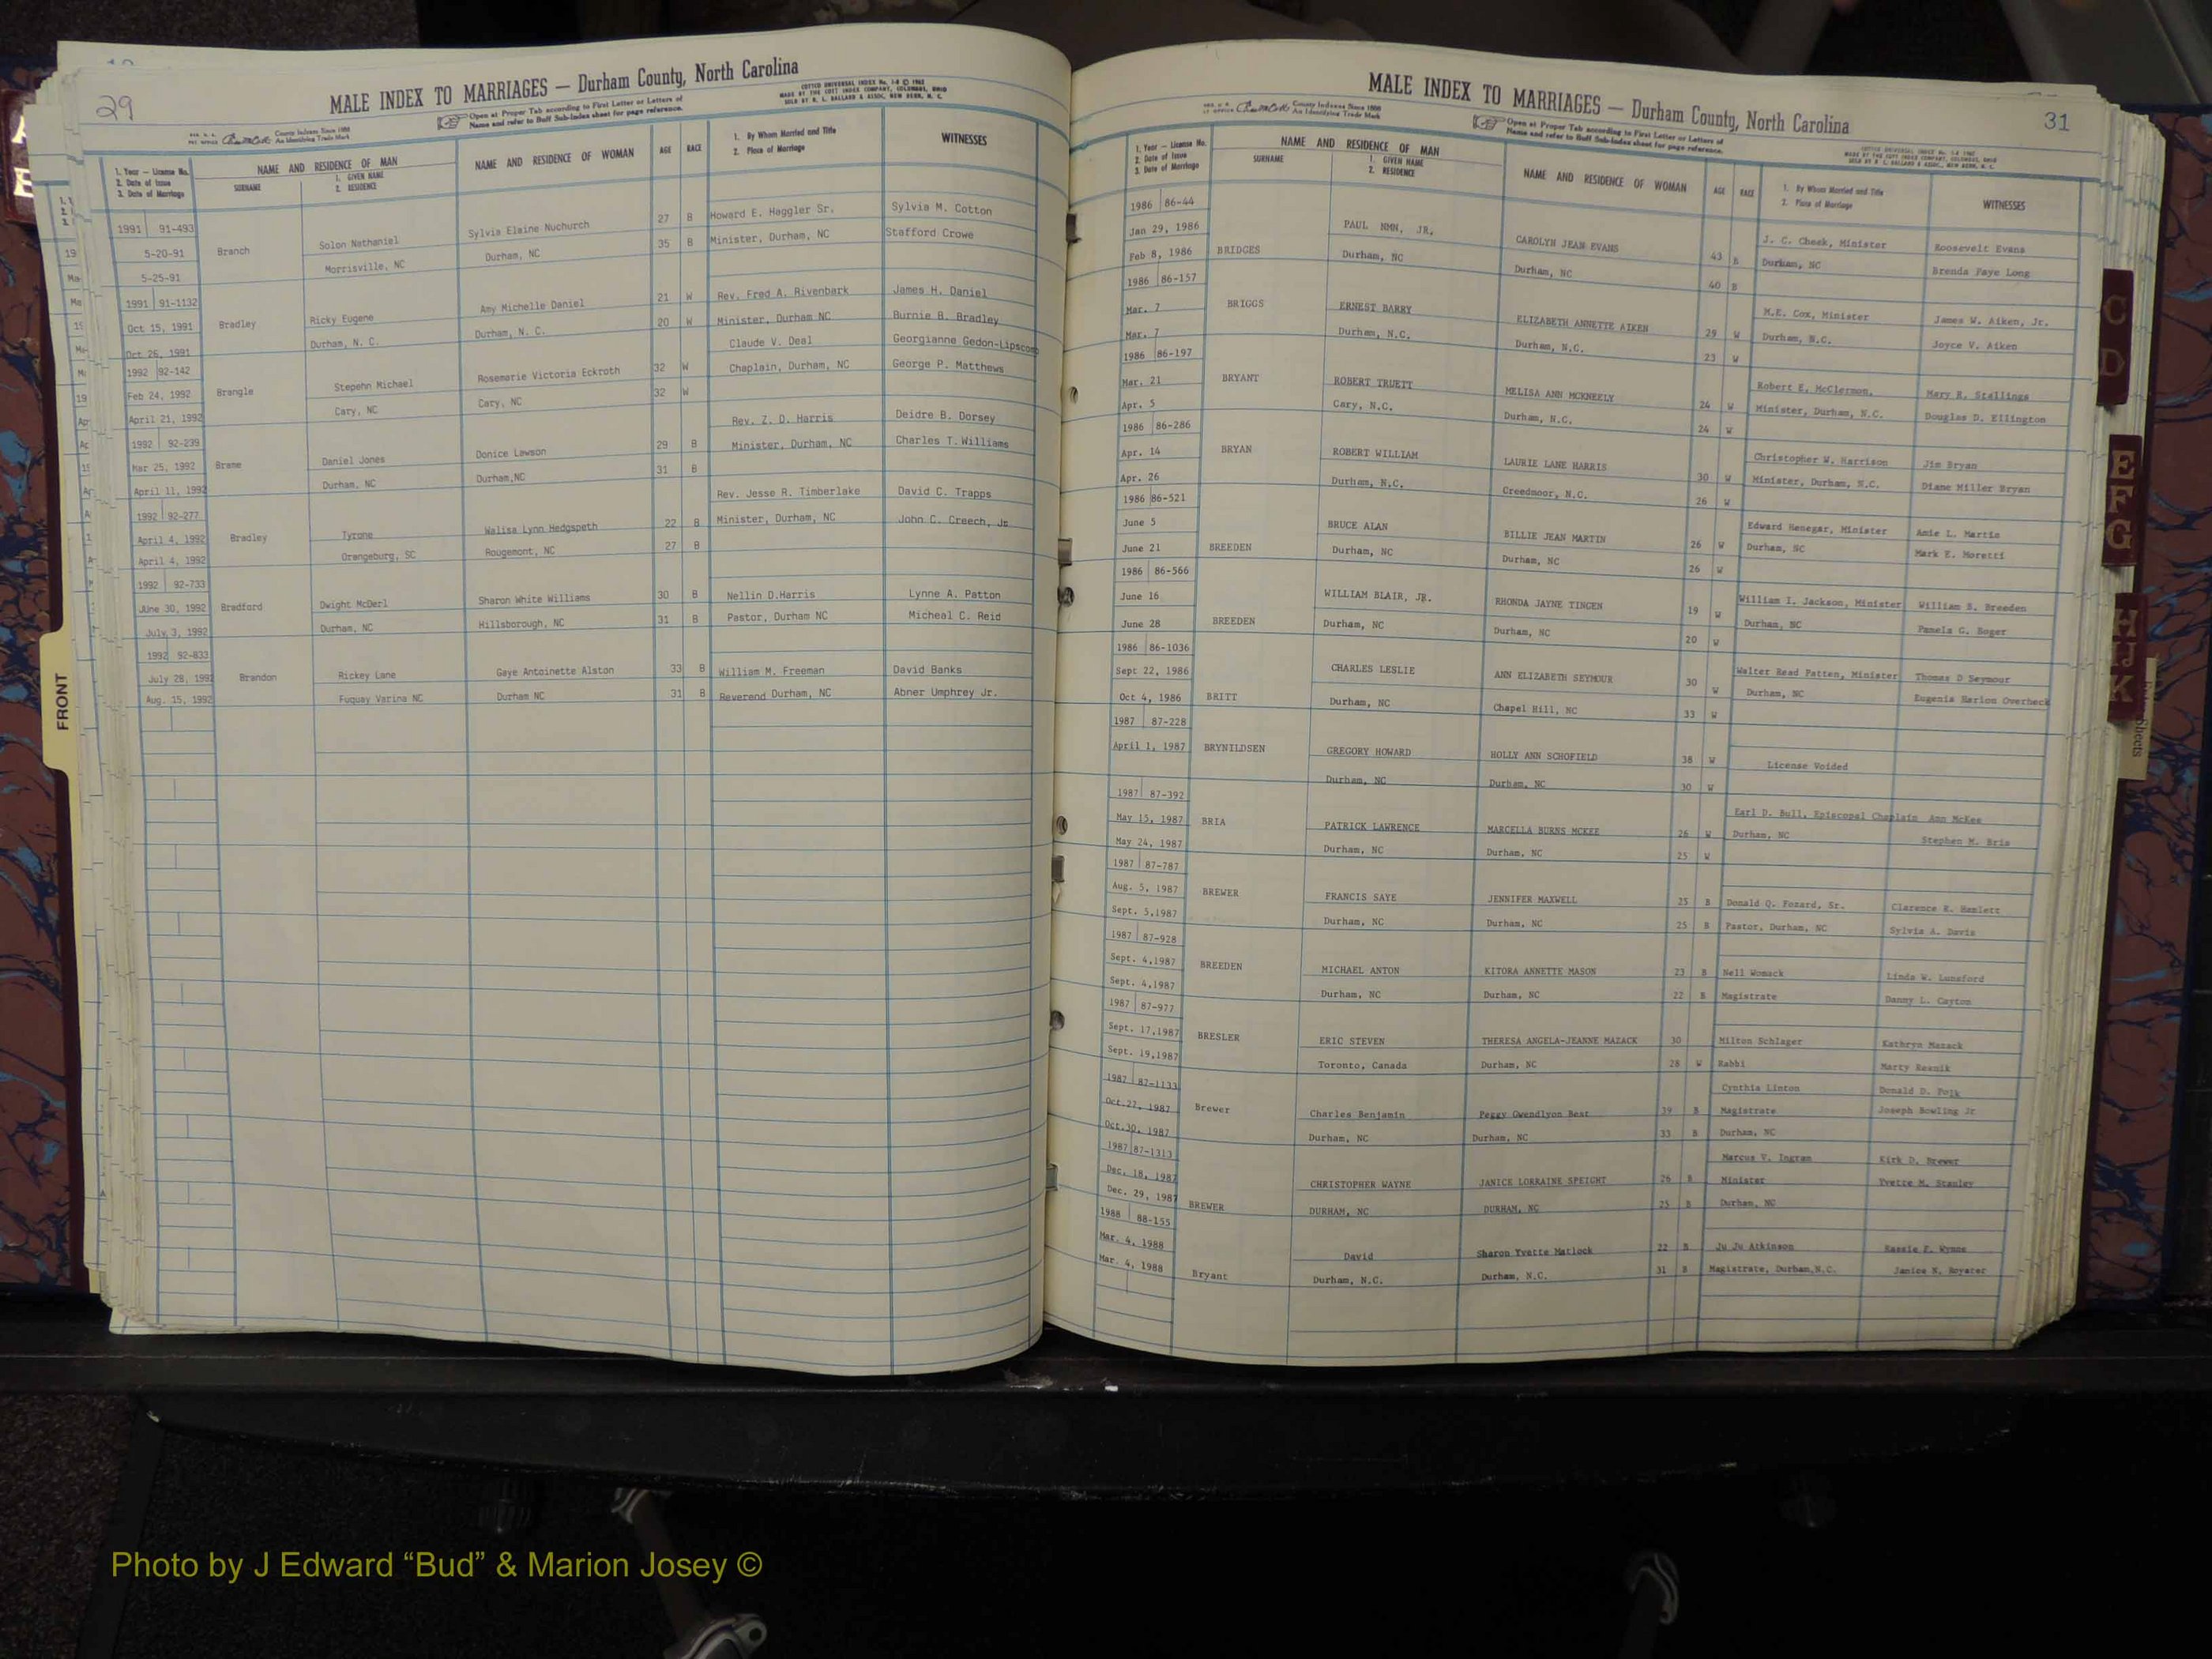 29
MALE INDEX TO MARRIAGES — Durham County, North Carolina
Open at Proper Tab according to First Letter or Letters of
Name and refer to Buff Sub-Index sheet for page reference.
County Indexes Since 1888
An Identifying Trade Mark
COTTCO UNIVERSAL INDEX No. 1-8 © 1962
MADE BY THE COTT INDEX COMPANY, COLUMBUS, OHIO
SOLD BY B. L. BALLARD & ASSOC. NEW BERN, N. C.
1. Year — License No.
2. Date of Issue
3. Date of Marriage
NAME AND RESIDENCE OF MAN
SURNAME
1. GIVEN NAME
2. RESIDENCE
NAME AND RESIDENCE OF WOMAN
AGE
RACE
1. By Whom Married and Title
2. Place of Marriage
WITNESSES
1991 91-493
5-20-91
5-25-91
Branch
Solon Nathaniel
Morrisville, NC
Sylvia Elaine Nuchurch
Durham, NC
27 B
35 B
Howard E. Haggler Sr.
Minister, Durham, NC
Sylvia M. Cotton
Stafford Crowe
1991 91-1132
Oct 15, 1991
Oct 26, 1991
Bradley
Ricky Eugene
Durham, N. C.
Amy Michelle Daniel
Durham, N. C.
21 W
20 W
Rev. Fred A. Rivenbark
Minister, Durham NC
James H. Daniel
Burnie B. Bradley
1992 92-142
Feb 24, 1992
April 21, 1992
Brangle
Stepehn Michael
Cary, NC
Rosemarie Victoria Eckroth
Cary, NC
32 W
32 W
Claude V. Deal
Chaplain, Durham, NC
Georgianne Gedon-Lipscomb
George P. Matthews
1992 92-239
Mar 25, 1992
April 11, 1992
Brame
Daniel Jones
Durham, NC
Donice Lawson
Durham,NC
29 B
31 B
Rev. Z. D. Harris
Minister, Durham, NC
Deidre B. Dorsey
Charles T. Williams
1992 92-277
April 4, 1992
April 4, 1992
Bradley
Tyrone
Orangeburg, SC
Walisa Lynn Hedgspeth
Rougemont, NC
22 B
27 B
Rev. Jesse R. Timberlake
Minister, Durham, NC
David C. Trapps
John C. Creech, Jr
1992 92-733
June 30, 1992
July 3, 1992
Bradford
Dwight McDerl
Durham, NC
Sharon White Williams
Hillsborough, NC
30 B
31 B
Nellin D.Harris
Pastor, Durham NC
Lynne A. Patton
Micheal C. Reid
1992 92-833
July 28, 1992
Aug. 15, 1992
Brandon
Rickey Lane
Fuquay Varina NC
Gaye Antoinette Alston
Durham NC
33 B
31 B
William M. Freeman
Reverend Durham, NC
David Banks
Abner Umphrey Jr.
FRONT
31
MALE INDEX TO MARRIAGES — Durham County, North Carolina
County Indexes Since 1888
An Identifying Trade Mark
Open at Proper Tab according to First Letter or Letters of
Name and refer to Buff Sub-Index sheet for page reference.
1. Year — License No.
2. Date of Issue
3. Date of Marriage
NAME AND RESIDENCE OF MAN
SURNAME
1. GIVEN NAME
2. RESIDENCE
NAME AND RESIDENCE OF WOMAN
AGE
RACE
1. By Whom Married and Title
2. Place of Marriage
WITNESSES
1986 86-44
Jan 29, 1986
Feb 8, 1986
BRIDGES
PAUL NMN, JR.
Durham, NC
CAROLYN JEAN EVANS
Durham, NC
43 B
40 B
J. C. Cheek, Minister
Durham, NC
Roosevelt Evans
Brenda Faye Long
1986 86-157
Mar. 7
Mar. 7
BRIGGS
ERNEST BARRY
Durham, N.C.
ELIZABETH ANNETTE AIKEN
Durham, N.C.
29 W
23 W
M.E. Cox, Minister
Durham, N.C.
James W. Aiken, Jr.
Joyce V. Aiken
1986 86-197
Mar. 21
Apr. 5
BRYANT
ROBERT TRUETT
Cary, N.C.
MELISA ANN MCKNEELY
Durham, N.C.
24 W
24 W
Robert E. McClernon,
Minister, Durham, N.C.
Mary R. Stallings
Douglas D. Ellington
1986 86-286
Apr. 14
Apr. 26
BRYAN
ROBERT WILLIAM
Durham, N.C.
LAURIE LANE HARRIS
Creedmoor, N.C.
30 W
26 W
Christopher W. Harrison
Minister, Durham, N.C.
Jim Bryan
Diane Miller Bryan
1986 86-521
June 5
June 21
BREEDEN
BRUCE ALAN
Durham, NC
BILLIE JEAN MARTIN
Durham, NC
26 W
26 W
Edward Henegar, Minister
Durham, NC
Amie L. Martin
Mark E. Moretti
1986 86-566
June 16
June 28
BREEDEN
WILLIAM BLAIR, JR.
Durham, NC
RHONDA JAYNE TINGEN
Durham, NC
19 W
20 W
William I. Jackson, Minister
Durham, NC
William B. Breeden
Pamela G. Boger
1986 86-1036
Sept 22, 1986
Oct 4, 1986
BRITT
CHARLES LESLIE
Durham, NC
ANN ELIZABETH SEYMOUR
Chapel Hill, NC
30 W
33 W
Walter Read Patten, Minister
Durham, NC
Thomas D Seymour
Eugenia Marion Overbeck
1987 87-228
April 1, 1987
BRYNILDSEN
GREGORY HOWARD
Durham, NC
HOLLY ANN SCHOFIELD
Durham, NC
38 W
30 W
License Voided
1987 87-392
May 15, 1987
May 24, 1987
BRIA
PATRICK LAWRENCE
Durham, NC
MARCELLA BURNS MCKEE
Durham, NC
26 W
25 W
Earl D. Bull, Episcopal Chaplain
Durham, NC
Ann McKee
Stephen M. Bria
1987 87-787
Aug. 5, 1987
Sept. 5,1987
BREWER
FRANCIS SAYE
Durham, NC
JENNIFER MAXWELL
Durham, NC
25 B
25 B
Donald Q. Fozard, Sr.
Pastor, Durham, NC
Clarence E. Hamlett
Sylvia A. Davis
1987 87-928
Sept. 4,1987
Sept. 4,1987
BREEDEN
MICHAEL ANTON
Durham, NC
KITORA ANNETTE MASON
Durham, NC
23 B
22 B
Nell Womack
Magistrate
Linda W. Lunsford
Danny L. Cayton
1987 87-977
Sept. 17,1987
Sept. 19,1987
BRESLER
ERIC STEVEN
Toronto, Canada
THERESA ANGELA-JEANNE MAZACK
Durham, NC
30
28 W
Milton Schlager
Rabbi
Kathryn Mazack
Marty Resnik
1987 87-1133
Oct.27, 1987
Oct.30, 1987
Brewer
Charles Benjamin
Durham, NC
Peggy Gwendlyon Best
Durham, NC
39 B
33 B
Cynthia Linton
Magistrate
Durham, NC
Donald D. Polk
Joseph Bowling Jr
1987 87-1313
Dec. 18, 1987
Dec. 29, 1987
BREWER
CHRISTOPHER WAYNE
DURHAM, NC
JANICE LORRAINE SPEIGHT
DURHAM, NC
26 B
25 B
Marcus V. Ingram
Minister
Durham, NC
Kirk D. Brewer
Yvette M. Stanley
1988 88-155
Mar. 4, 1988
Mar. 4, 1988
Bryant
David
Durham, N.C.
Sharon Yvette Matlock
Durham, N.C.
22 B
31 B
Ju Ju Atkinson
Magistrate, Durham,N.C.
Kassie P. Wynne
Janice N. Royster
C
D
E
F
G
H
IJ
K
Photo by J Edward “Bud” & Marion Josey ©